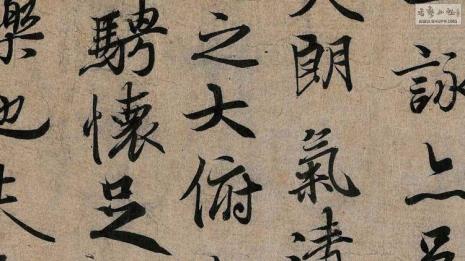 詠亦足
天朗氣清
之大俯
騁懷足
樂也夫